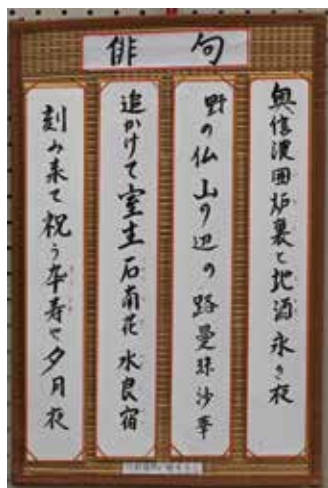 俳句
奥信濃囲炉裏と地酒永き夜
野の仏山の辺の路曼珠沙華
追かけて室生石南花水良宿
刻み来て祝う卒寿や夕月夜